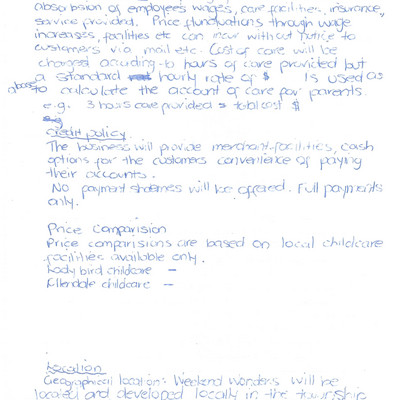 absorbsion of employee's wages, care facilities, insurance,
service provided. Price flunctuations through wage
increases, facilities etc can incur without notice to
customers via mail etc. Cost of care will be
charged acording to hours of care provided but
a standard hourly rate of $ is used as
a base to calculate the account of care for parents.
e.g. 3 hours care provided = total cost $
eg
Credit policy.
The business will provide merchant facilities, cash
options for the customers convenience of paying
their accounts.
No payment schemes will be offered. Full payments
only.
Price Comparision
Price comparisions are based on local childcare
facilities available only.
Lady bird childcare –
Ellendale childcare –
Location
Geographical location: Weekend Wonders will be
located and developed locally in the township